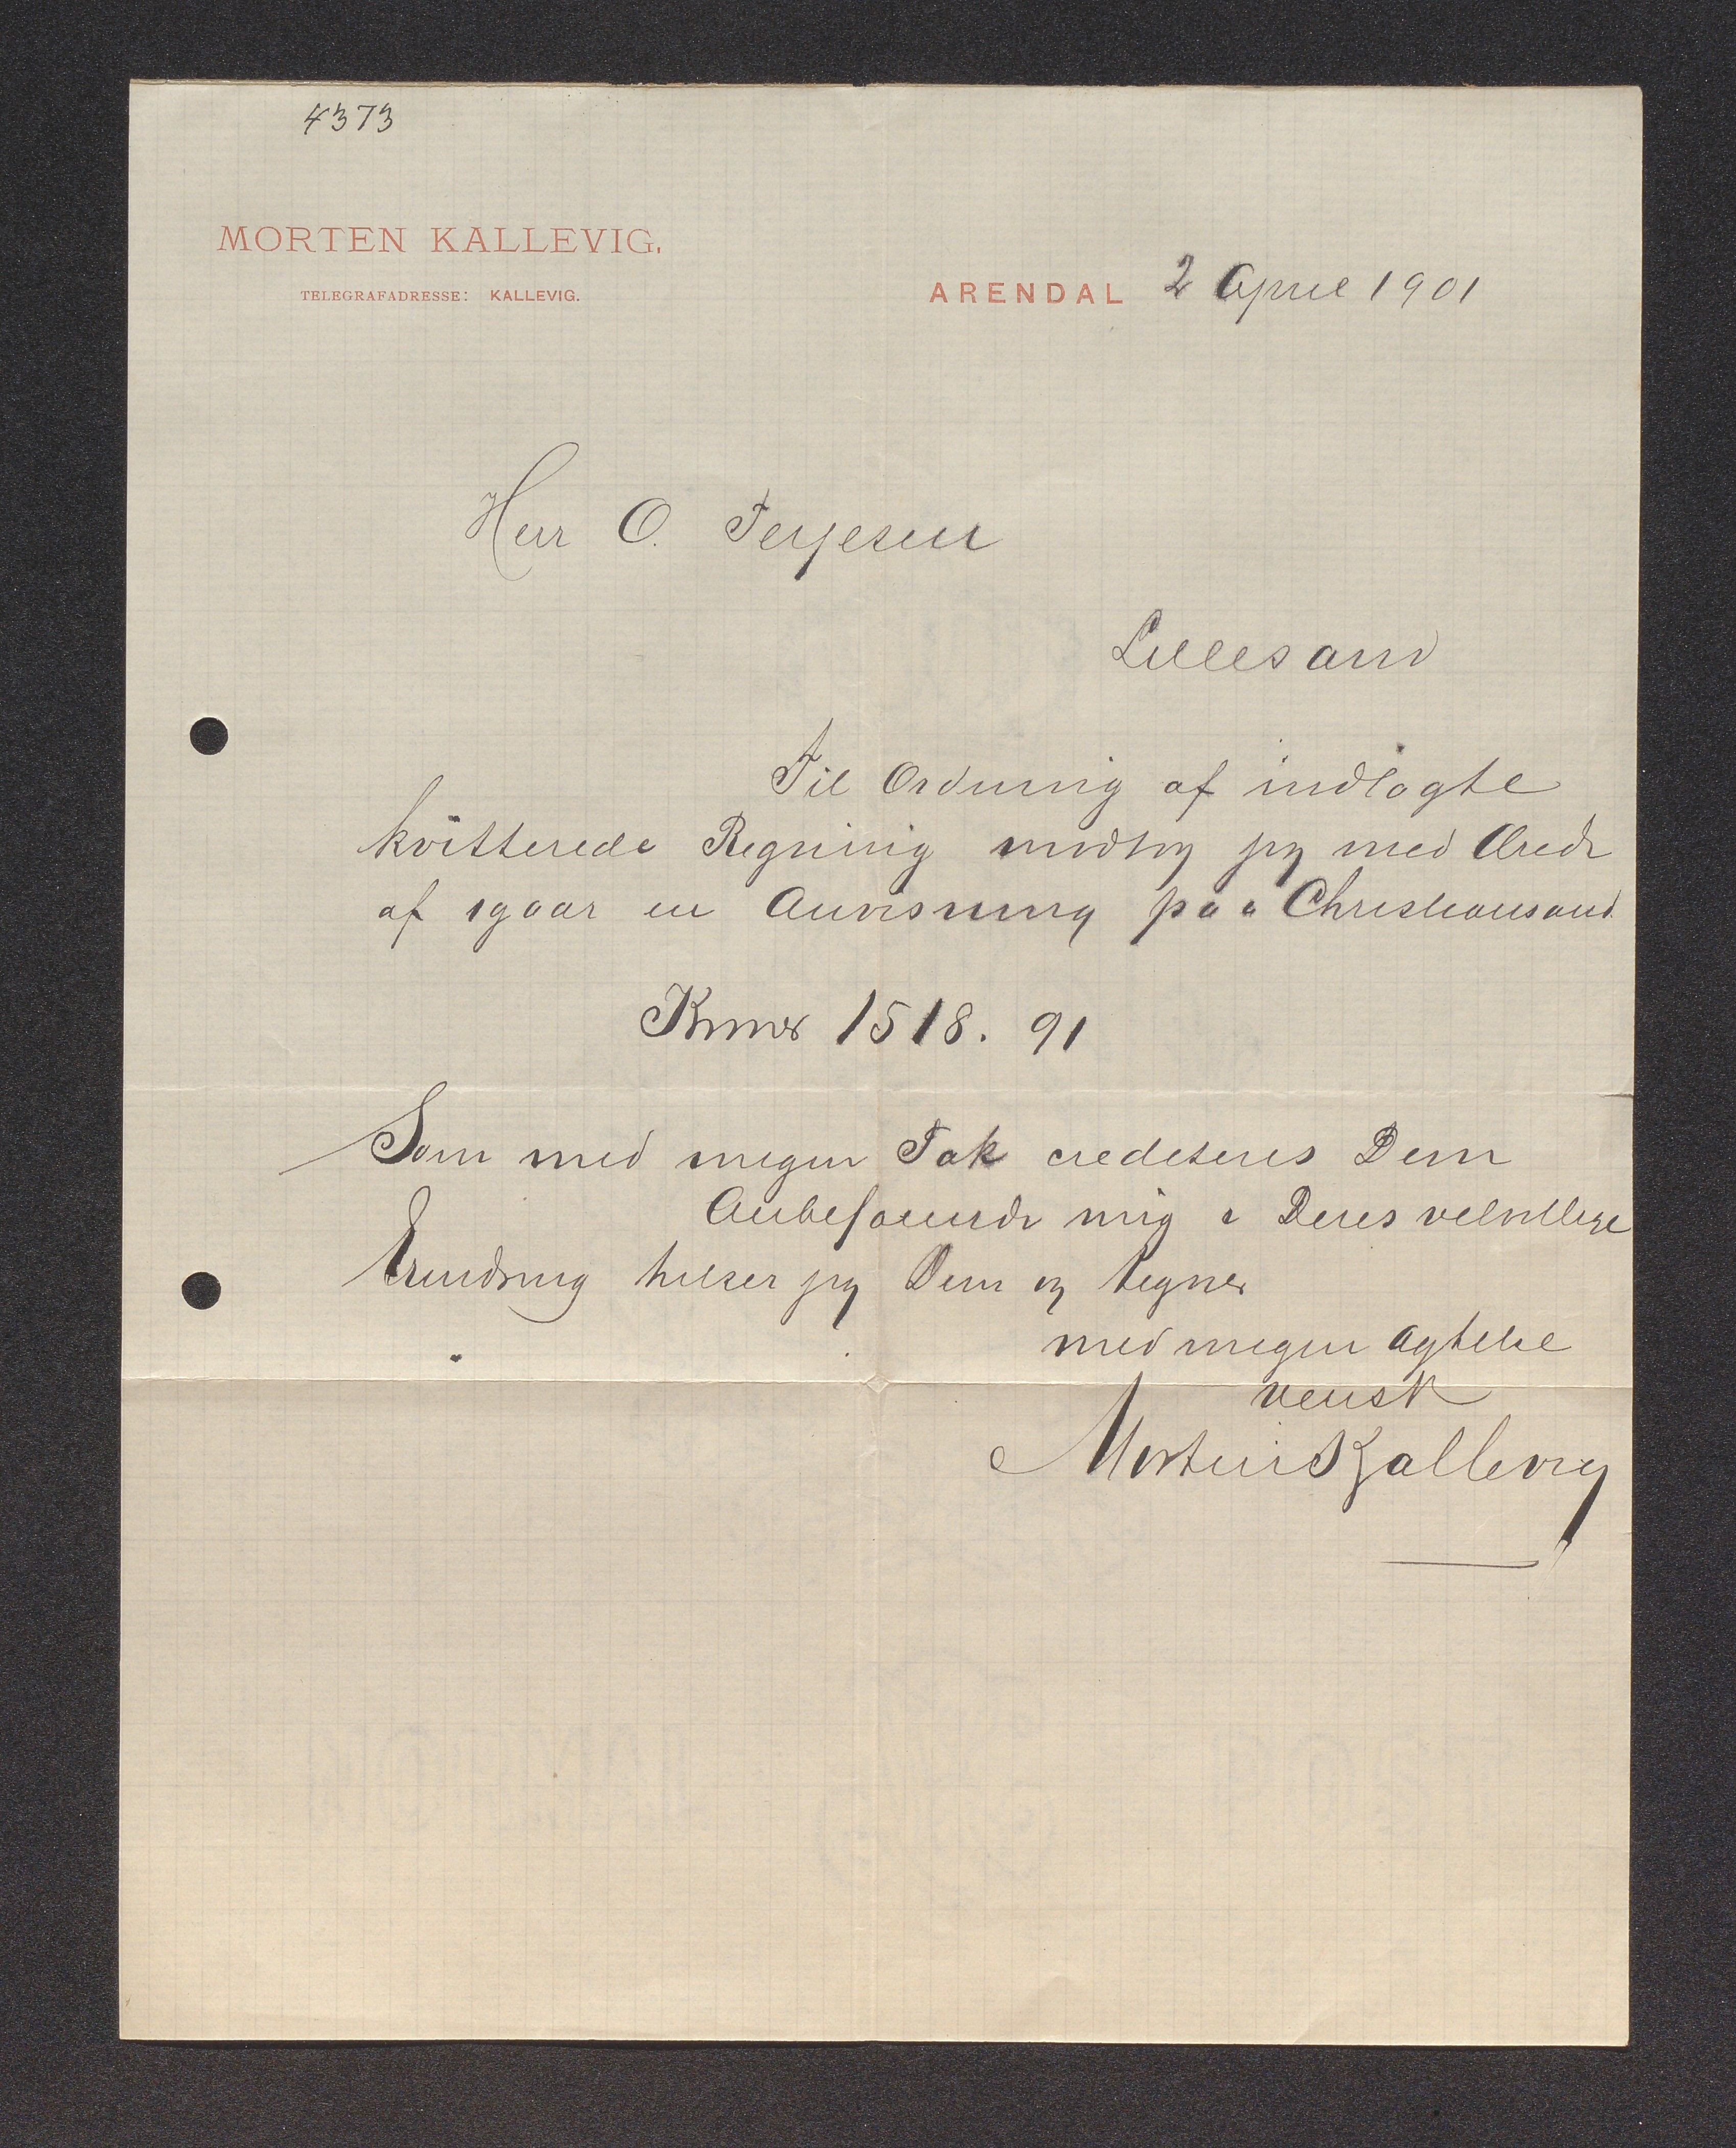 4373
MORTEN KALLEVIG.
TELEGRAFADRESSE: KALLEVIG.
ARENDAL 2 April 1901
Herr O. Terjesen
Lillesand
Til Ordning af indlagte
kvitterede Regning modtog jeg med Ærede
af igaar en Anvisning paa Christiansand
Kroner 1518. 91
Som med megen Tak crediteres Dem
Anbefalende mig i Deres velvillige
Erindring hilser jeg Dem og tegner
med megen Agtelse
venskl
Morten Kallevig